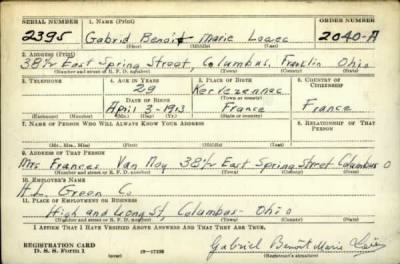 SERIAL NUMBER 1. NAME (Print) ORDER NUMBER
2395 Gabriel Benoit Marie 2040-A
(First) (Middle) (Last)
2. ADDRESS (Print)
38½ East Spring Street, Columbus, Franklin Ohio
(Number and street or R. F. D. number) (Town) (County) (State)
3. TELEPHONE 4. AGE IN YEARS 5. PLACE OF BIRTH 6. COUNTRY OF CITIZENSHIP
29 Kervezennac
DATE OF BIRTH (Town or county)
April 3-1913 France France
(Exchange) (Number) (Mo.) (Day) (Yr.) (State or country)
7. NAME OF PERSON WHO WILL ALWAYS KNOW YOUR ADDRESS 8. RELATIONSHIP OF THAT PERSON
(Mr., Mrs., Miss) (First) (Middle) (Last)
9. ADDRESS OF THAT PERSON
Mrs. Frances Van 38½ East Spring Street Columbus O
(Number and street or R. F. D. number) (Town) (County) (State)
10. EMPLOYER'S NAME
H.L. Green Co
11. PLACE OF EMPLOYMENT OR BUSINESS
High and Long St, Columbus- Ohio
(Number and street or R. F. D. number) (Town) (County) (State)
I AFFIRM THAT I HAVE VERIFIED ABOVE ANSWERS AND THAT THEY ARE TRUE.
REGISTRATION CARD
D. S. S. Form 1 (over) Gabriel Benoit Marie